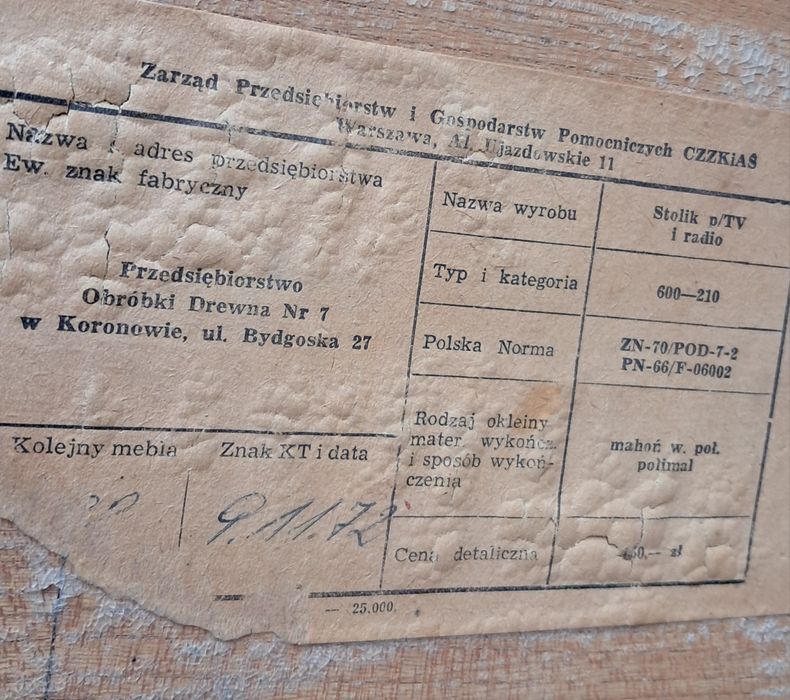 Zarząd Przedsiębiorstw i Gospodarstw Pomocniczych CZZKiAŚ
Warszawa, Al. Ujazdowskie 11
Nazwa i adres przedsiębiorstwa
Ew. znak fabryczny
Przedsiębiorstwo
Obróbki Drewna Nr 7
w Koronowie, ul. Bydgoska 27
Kolejny mebla
Znak KT i data
9.11.72
Nazwa wyrobu
Stolik p/TV
i radio
Typ i kategoria
600—210
Polska Norma
ZN-70/POD-7-2
PN-66/F-06002
Rodzaj okleiny
mater. wykończ.
i sposób wykoń-
czenia
mahoń w. poł.
polimal
Cena detaliczna
zł
— 25.000.